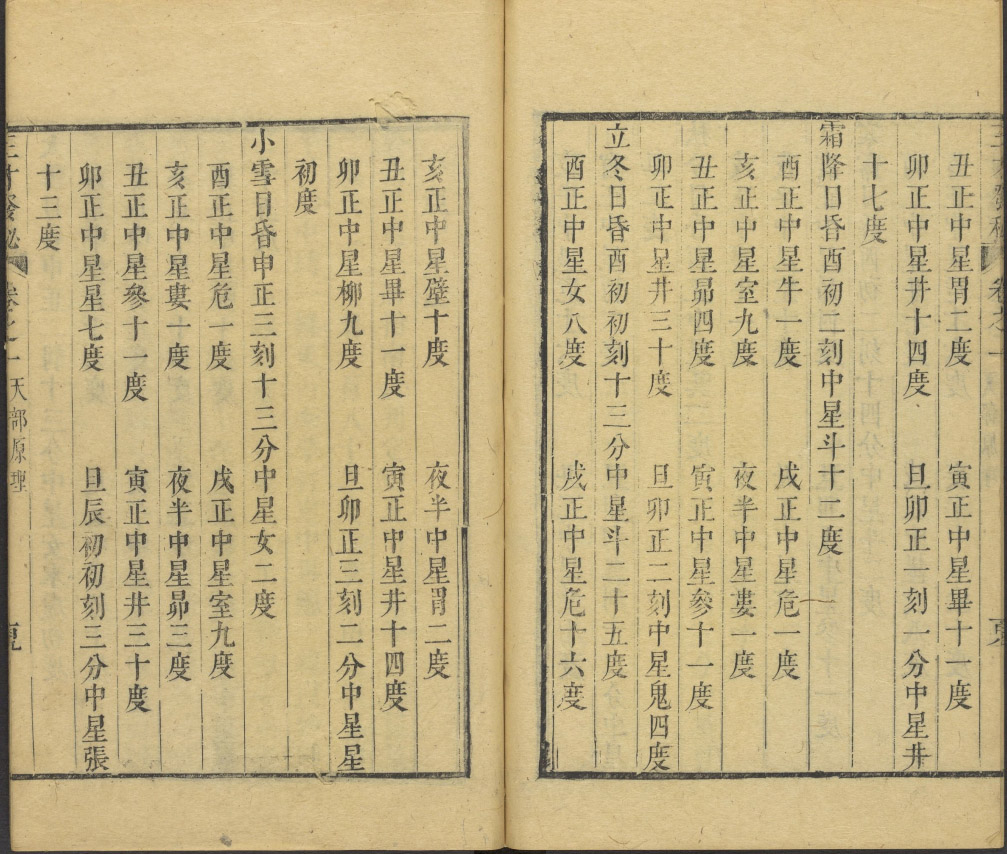 丑正中星胃二度　寅正中星畢十一度
卯正中星井十四度　旦卯正一刻一分中星井
十七度
霜降日昏酉初二刻中星斗十二度
酉正中星牛一度　戌正中星危一度
亥正中星室九度　夜半中星婁一度
丑正中星昴四度　寅正中星參十一度
卯正中星井三十度　旦卯正二刻中星鬼四度
立冬日昏酉初初刻十三分中星斗二十五度
酉正中星女八度　戌正中星危十六度
亥正中星壁十度　夜半中星胃二度
丑正中星畢十一度　寅正中星井十四度
卯正中星柳九度　旦卯正三刻二分中星星
初度
小雪日昏申正三刻十三分中星女二度
酉正中星危一度　戌正中星室九度
亥正中星婁一度　夜半中星昴三度
丑正中星參十一度　寅正中星井三十度
卯正中星星七度　旦辰初初刻三分中星張
十三度
三才發秘　卷之一　天部原理